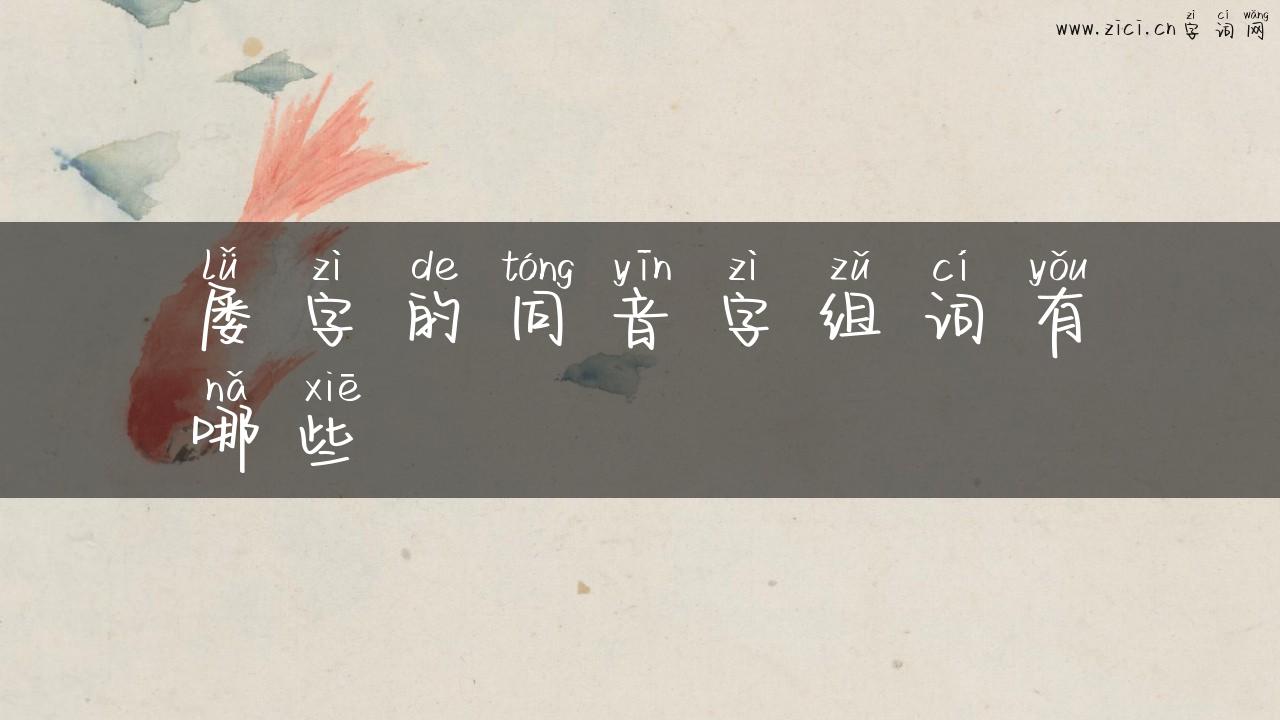 zì cí wǎng
www.zici.cn 字词网
lǚ zì de tóng yīn zì zǔ cí yǒu
屡字的同音字组词有
nǎ xiē
哪些